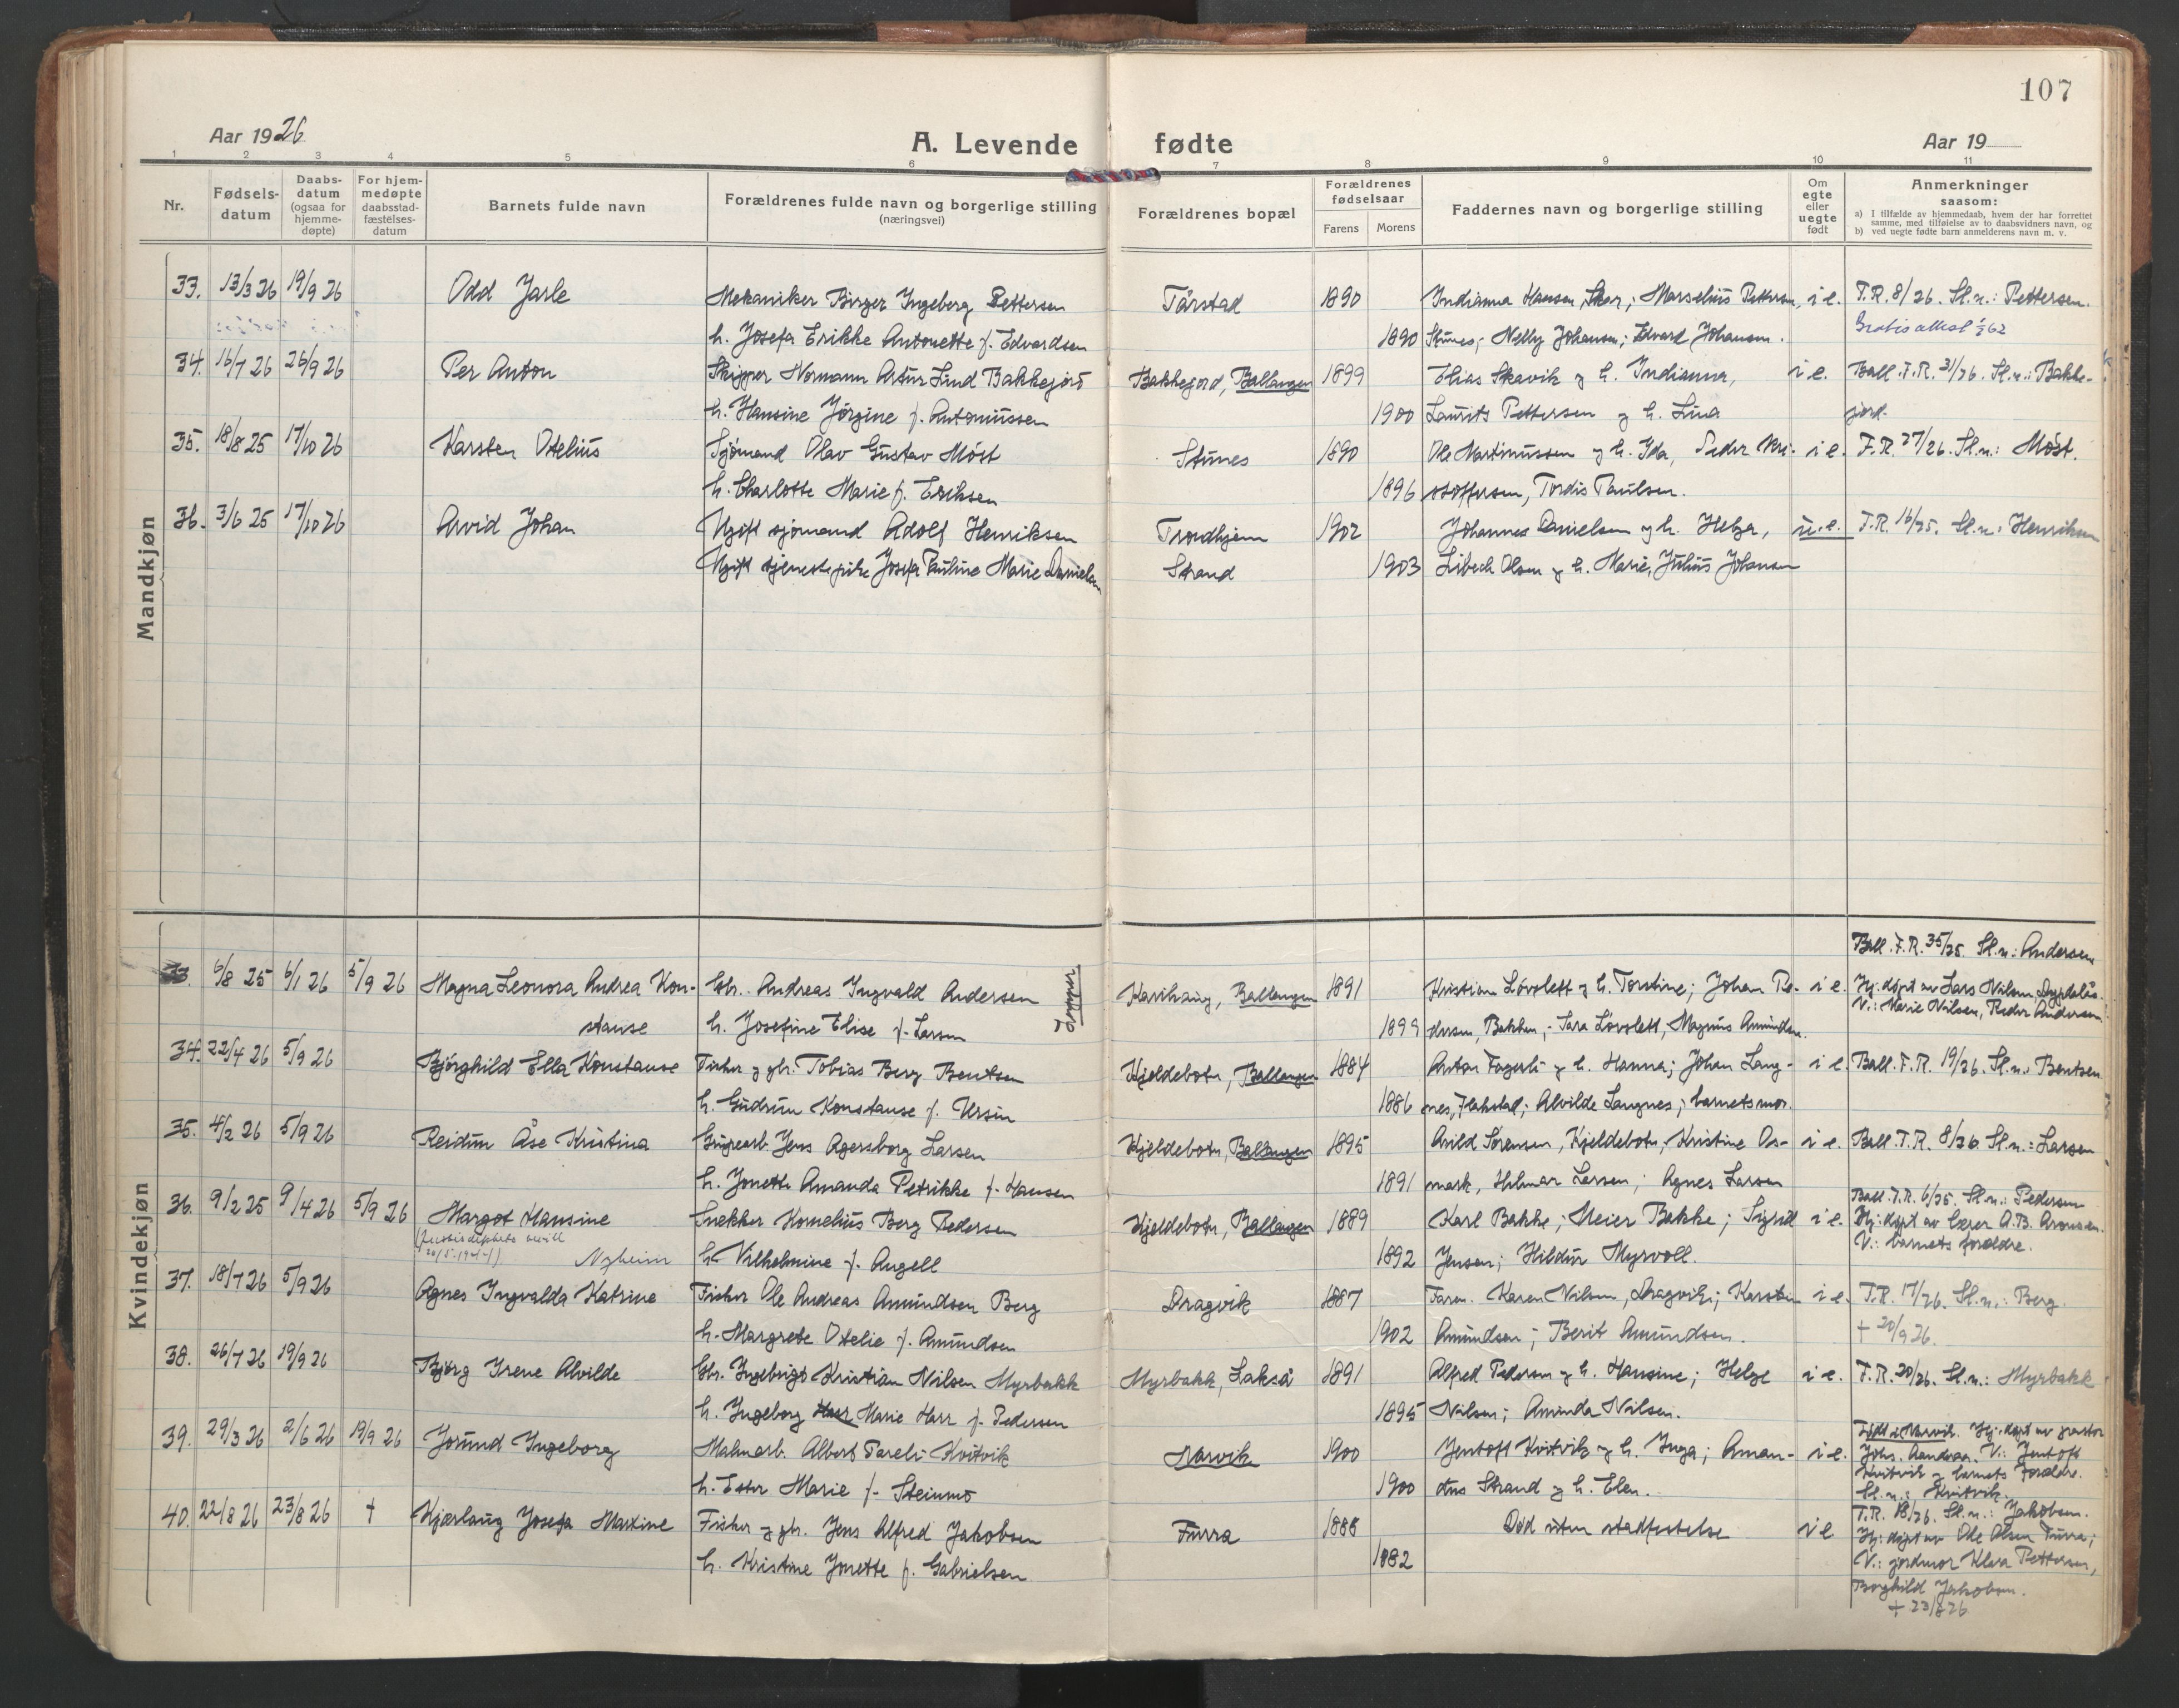 107
Aar 1926
A. Levende fødte
Aar 19
1 2 3 4 5 6 7 8 9 10 11
Nr.
Fødsels-datum
Daabs-datum (ogsaa for hjemme-døpte)
For hjem-medøpte daabsstad-fæstelses-datum
Barnets fulde navn
Forældrenes fulde navn og borgerlige stilling (næringsvei)
Forældrenes bopæl
Forældrenes fødselsaar
Farens Morens
Faddernes navn og borgerlige stilling
Om egte eller uegte født
Anmerkninger saasom:
a) I tilfælde av hjemmedaab, hvem der har forrettet samme, med tilføielse av to daabsvidners navn, og
b) ved uegte fødte barn anmelderens navn m. v.
Mandkjøn
33. 13/3 26 19/9 26 Odd Jarle Mekaniker Birger Ingeberg Pettersen Tårstad 1890 Indianna Hansen, Skar; Marselius Pettersen, i e. F.R. 8/26. Sl.n.: Pettersen.
h. Josefa Erikke Antonette f. Edvardsen 1890 Stunes; Nelly Johansen; Edvard Johansen. Gratis attest 62
34. 16/7 26 26/9 26 Per Anton Skipper Normann Artur Lind Bakkejord Bakkejord, Ballangen 1899 Elias Skavik og h. Indianna, i e. Ball. F.R. 31/26. Sl.n.: Bakke-
h. Hansine Jörgine f. Antoniussen 1900 Laurits Pettersen og h. Lina jord.
35. 18/8 25 17/10 26 Karsten Otelius Sjømand Olav Gustav Möst Stunes 1890 Ole Martinussen og h. Ida, Peder Kri- i e. F.R. 27/26. Sl.n.: Möst.
h. Charlotte Marie f. Eriksen 1896 stoffersen, Tordis Paulsen.
36. 3/6 25 17/10 26 Arvid Johan Ugift sjømand Adolf Henriksen Trondhjem 1902 Johannes Danielsen og h. Helga, u.e. F.R. 16/25. Sl.n.: Henriksen
Ugift tjenestepike Josefa Pauline Marie Danielsen Strand 1903 Libech Olsen og h. Marie, Julius Johansen
Kvindekjøn
Ball. F.R. 35/25. Sl.n.: Andersen
33. 6/8 25 6/1 26 5/9 26 Magna Leonora Andrea Kon- Gbr. Andreas Ingvald Andersen Karihaug, Ballangen 1891 Kristian Lövslett og h. Torstine; Johan Pe- i e. Hj: døpt av Lars Nilsen,
stanse h. Josefine Elise f. Larsen 1899 dersen, Bakken; Sara Lövslett, Magnus Amundsen. V.: Marie Nilsen, Peder Andersen
34. 22/4 26 5/9 26 Bjørghild Ella Konstanse Fisker og gbr. Tobias Berg Bentsen Kjeldebotn, Ballangen 1884 Anton Fagerli og h. Hanna; Johan Lang- i e. Ball. F.R. 19/26. Sl.n.: Bentsen
h. Gudrun Konstanse f. Ursin 1886 nes, ; Alvilde Langnes; barnets mor.
35. 4/2 26 5/9 26 Reidun Åse Kristina Grubearb. Jens Agersborg Larsen Kjeldebotn, Ballangen 1895 Arild Sørensen, Kjeldebotn; Kristine Os- i e. Ball. F.R. 8/26. Sl.n.: Larsen
h. Jonette Amanda Petrikke f. Hansen 1891 mark, Helmar Larsen; Agnes Larsen
Ball. F.R. 6/25. Sl.n.: Pedersen
36. 9/2 25 9/4 26 5/9 26 Margot Hansine Snekker Kornelius Berg Pedersen Kjeldebotn, Ballangen 1889 Karl Bakke; Meier Bakke; Sigrid i e. Hj: døpt av lærer A.B. Aronsen.
Nyheim h. Vilhelmine f. Angell 1892 Jensen; Hildur Myrvoll. V.: barnets foreldre.
37. 18/7 26 5/9 26 Agnes Ingvalda Katrine Fisker Ole Andreas Amundsen Berg Dragvik 1887 Faren. Karen Nilsen, Dragvik; Karsten i e. F.R. 17/26. Sl.n.: Berg.
h. Margrete Otelie f. Amundsen 1902 Amundsen; Berit Amundsen. + 20/9 26.
38. 26/7 26 19/9 26 Bjørg Irene Alvilde Gbr. Ingebrigt Kristian Nilsen Myrbakk Myrbakk, Lakså 1891 Alfred Pedersen og h. Hansine; Helge i e. F.R. 20/26. Sl.n.: Myrbakk
h. Ingeborg Marie Harr f. Pedersen 1895 Nilsen; Amanda Nilsen.
39. 29/3 26 2/6 26 19/9 26 Jorund Ingeborg Malmarb. Albert Pareli Kvitvik Narvik 1900 Jentoft Kvitvik og h. Inga; Aman- i e. Født i Narvik. Hj: døpt av
Johs. Aandraa. V.: Jentoft
h. Ester Marie f. Steinmo 1900 dus Strand og h. Elen. Kvitvik og barnets foreldre.
Sl.n.: Kvitvik.
40. 22/8 26 23/8 26 † Kjærlaug Josefa Maxine Fisker og gbr. Jens Alfred Jakobsen Furra 1888 Død uten stadfestelse i e F.R. 18/26. Sl.n.: Jakobsen.
Hj: døpt av Ole Olsen Furra;
h. Kristine Jonette f. Gabrielsen 1882 V.: jordmor Klara Pettersen,
Borghild Jakobsen.
+ 23/8 26